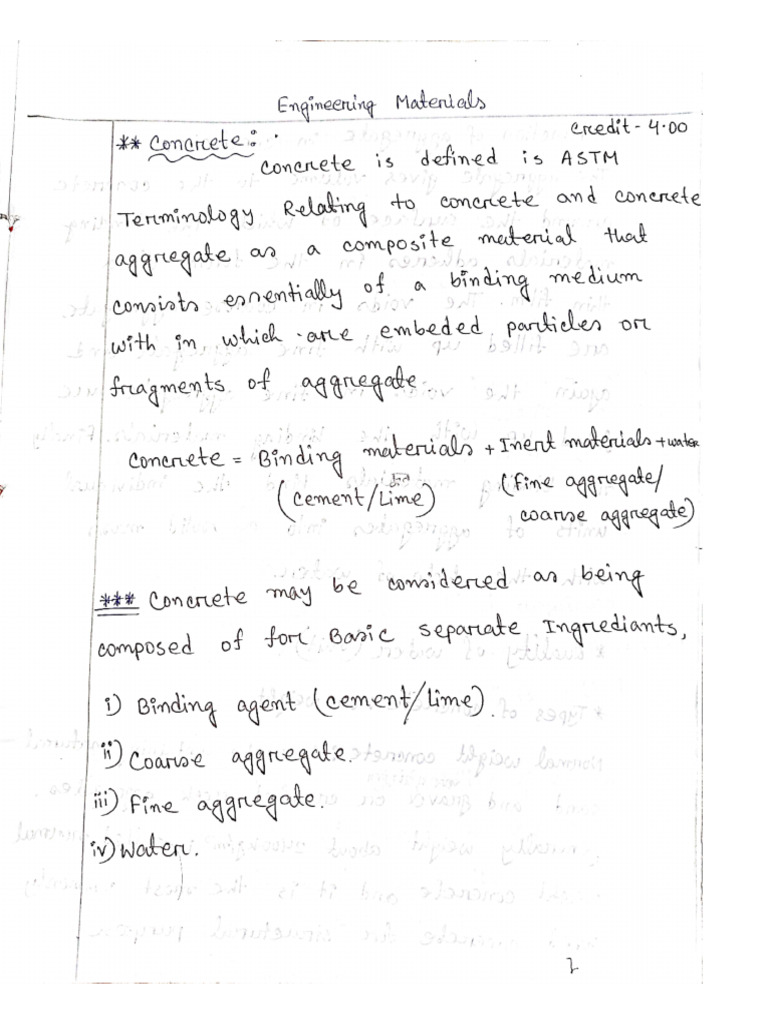 Engineering Materials
Credit - 4.00
** Concrete:
Concrete is defined is ASTM
Terminology Relating to concrete and concrete
aggregate as a composite material that
consists essentially of a binding medium
with in which are embeded particles or
fragments of aggregate
Concrete = Binding materials + Inert materials + water
(cement/Lime) (fine aggregate/
coarse aggregate)
*** Concrete may be considered as being
composed of for Basic separate Ingrediants,
i) Binding agent (cement/Lime).
ii) Coarse aggregate.
iii) Fine aggregate.
iv) Water.
1